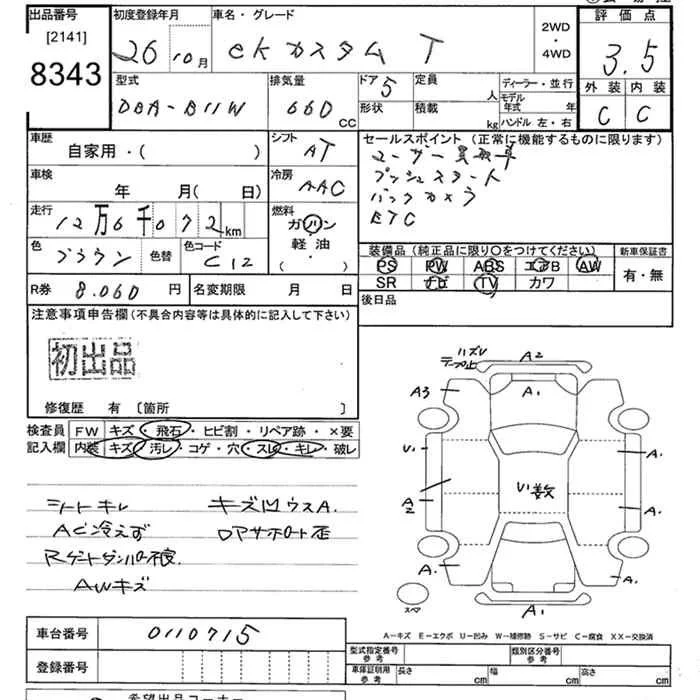 出品番号
[2141]
8343
初度登録年月
26 10月
車名・グレード
eKカスタム T
2WD
・
4WD
評価点
3.5
外装 内装
C C
型式
DBA-B11W
排気量
660 CC
ドア 5
形状
定員 人
積載 kg
ディーラー・並行
モデル年式 年
ハンドル 左・右
車歴
自家用・( )
シフト
AT
車検
年 月( 日)
冷房
AAC
走行
12万6千072km
燃料
ガソリン
軽油・
( )
色
ブラウン
色替
色コード
C12
R券 8.060 円
名変期限 月 日
セールスポイント (正常に機能するものに限ります)
ユーザー買取車
プッシュスタート
バックカメラ
ETC
装備品 (純正品に限り〇をつけてください)
PS PW ABS エアB AW
SR ナビ TV カワ
新車保証書
有・無
後日品
注意事項申告欄(不具合内容等は具体的に記入して下さい)
初出品
修復歴 有 〔箇所 〕
検査員 FW キズ・飛石・ヒビ割・リペア跡・×要
記入欄 内装 キズ・汚レ・コゲ・穴・スレ・キレ・破レ
シートキレ
AC冷えず
Rゲートダンパー不良
AWキズ
キズ凹ウスA.
ロアサポート歪
ハズレ
テープ止
A2
A3
A1
U.
A.
A2
い数
A.
A.
A.
スペア
A1
A-キズ E-エクボ U-凹み W-補修跡 S-サビ C-腐食 XX-交換済
車台番号 0110715
登録番号
型式指定番号
参考
類別区分番号
参考
車庫証明用
参考
長さ cm
幅 cm
高さ cm
希望出品コーナー